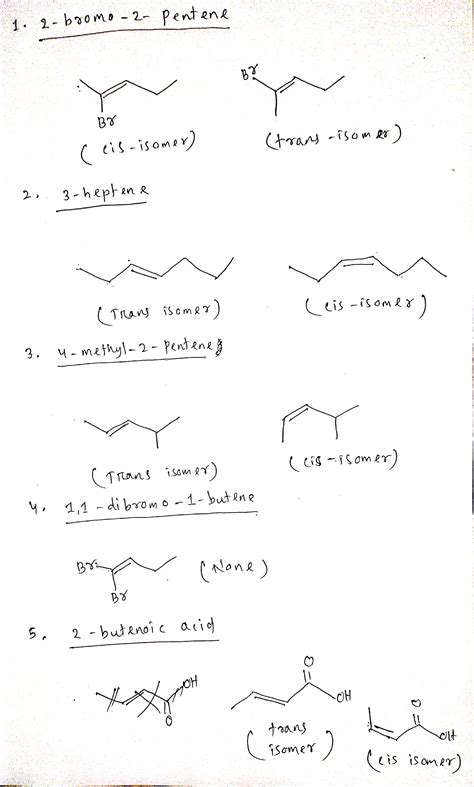 1. 2-bromo-2-pentene
Br
Br
(cis-isomer)
(trans-isomer)
2. 3-heptene
(Trans isomer)
(cis-isomer)
3. 4-methyl-2-pentene
(Trans isomer)
(cis-isomer)
4. 1,1-dibromo-1-butene
Br
Br
(None)
5. 2-butenoic acid
OH
O
O
OH
(trans
isomer)
O
OH
(cis isomer)